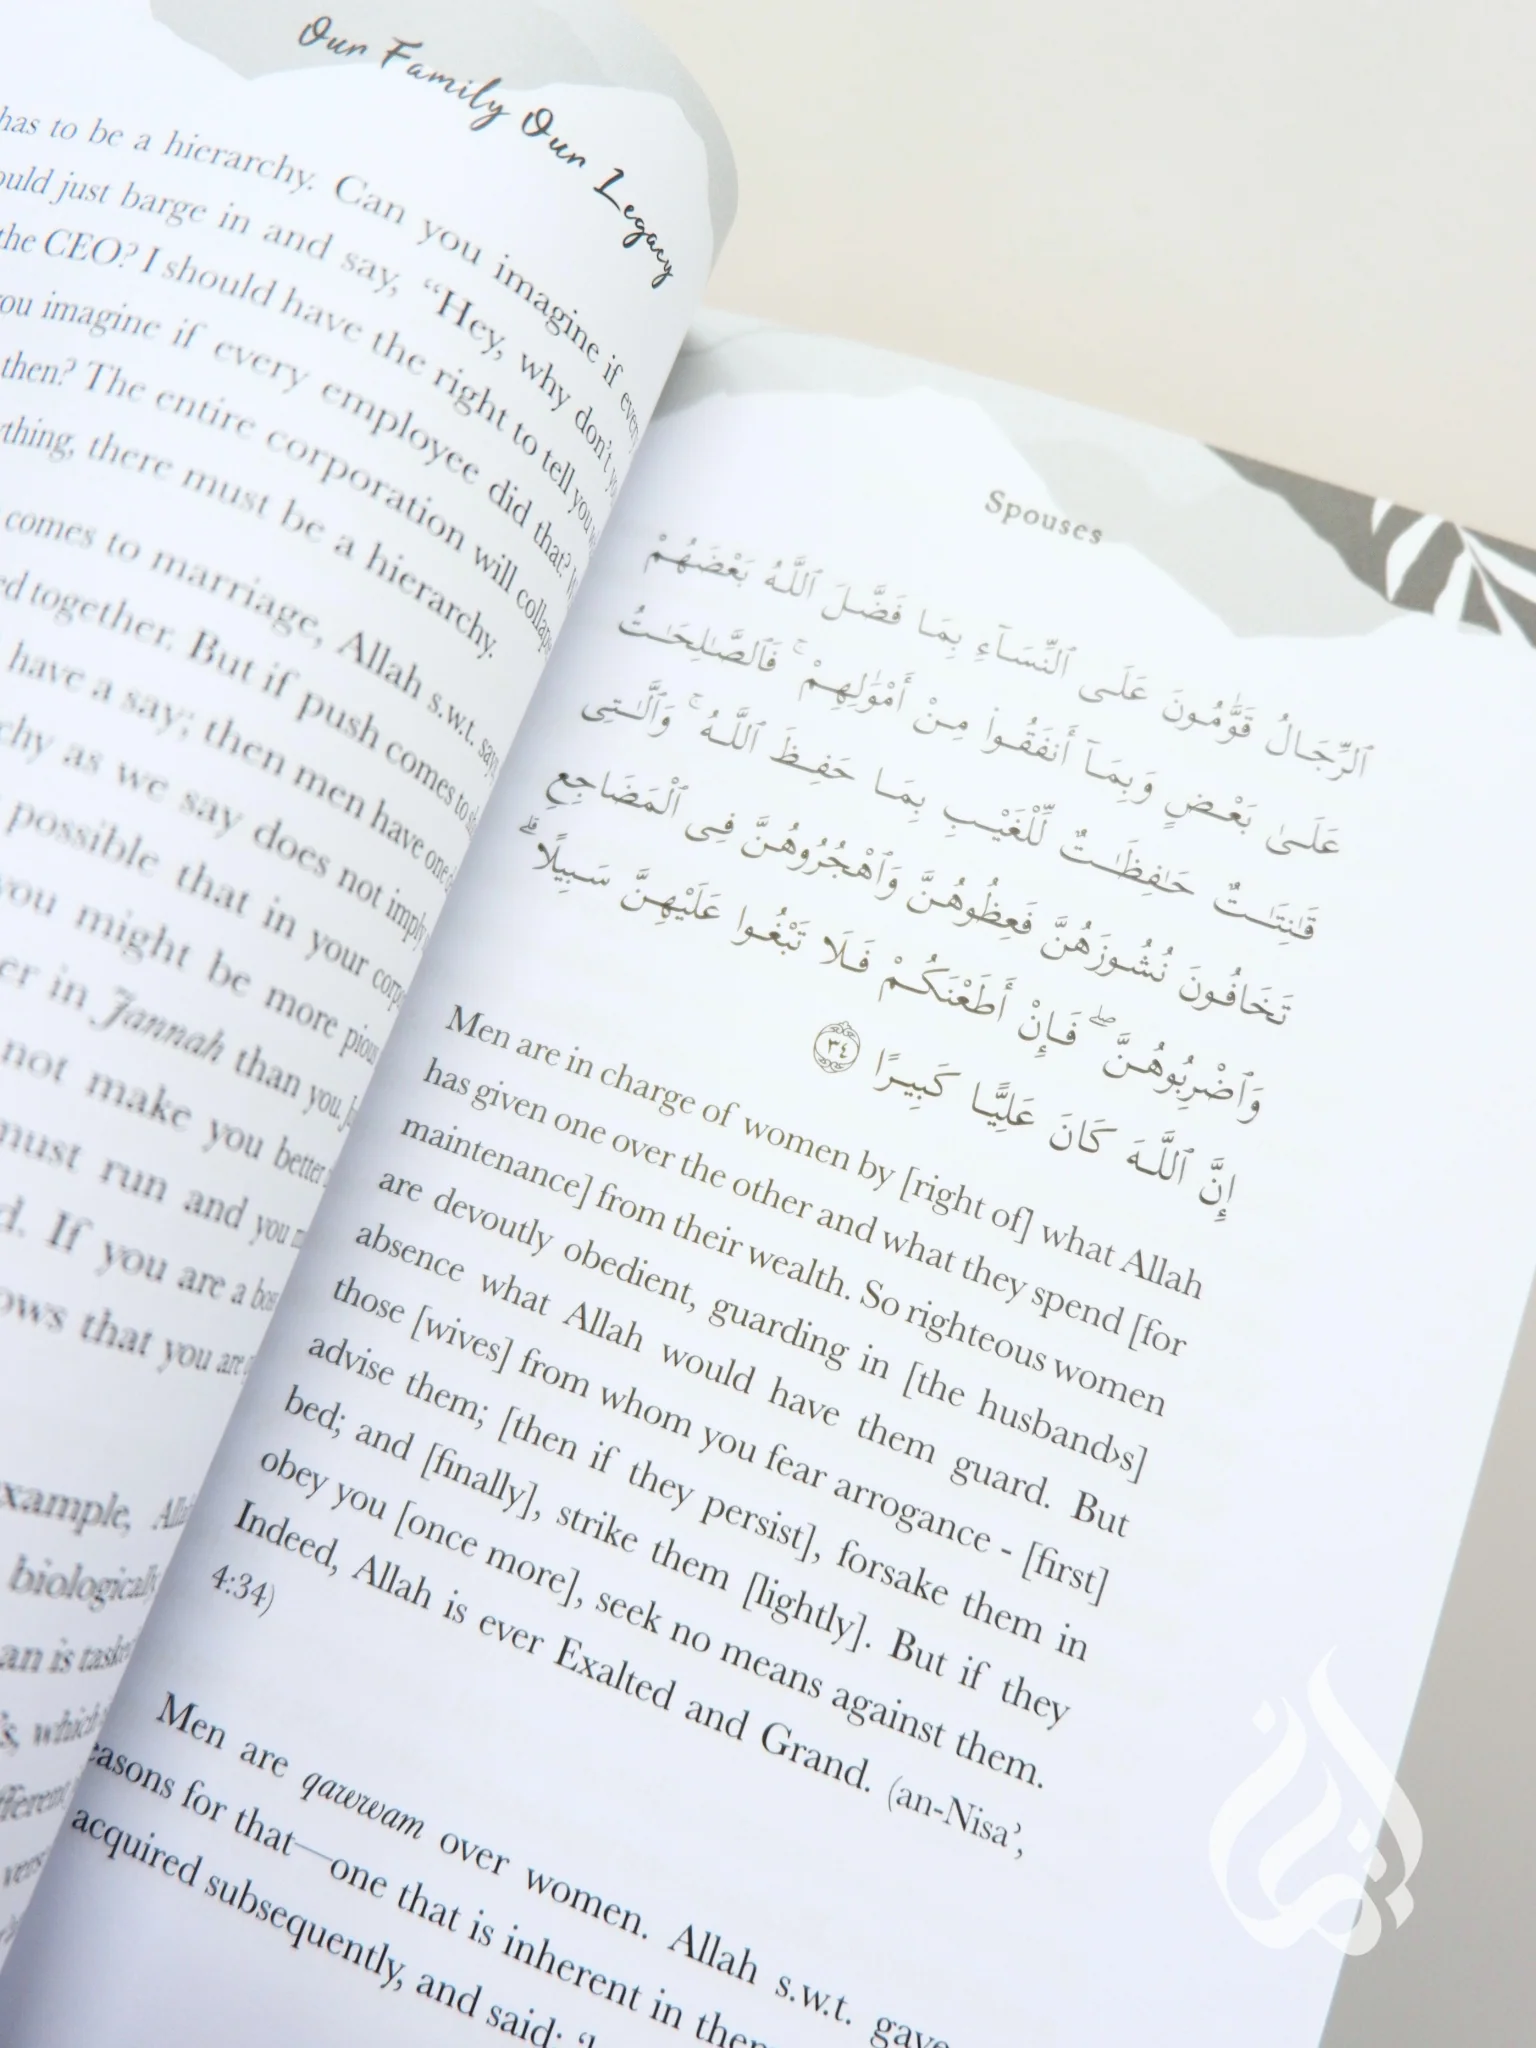 Our Family Our Legacy
has to be a hierarchy. Can you imagine if every
just barge in and say, “Hey, why don’t
the CEO? I should have the right to tell you
imagine if every employee did that?
then? The entire corporation will collapse
there must be a hierarchy.
comes to marriage, Allah s.w.t. says
together. But if push comes to
have a say; then men have one
as we say does not imply
possible that in your
you might be more pious
in Jannah than you.
not make you better
must run and you
If you are a
that you are
Allah
biologically
is
which
Spouses
ٱلرِّجَالُ قَوَّٰمُونَ عَلَى ٱلنِّسَآءِ بِمَا فَضَّلَ ٱللَّهُ بَعْضَهُمْ
عَلَىٰ بَعْضٍ وَبِمَآ أَنفَقُوا۟ مِنْ أَمْوَٰلِهِمْ ۚ فَٱلصَّـٰلِحَـٰتُ
قَـٰنِتَـٰتٌ حَـٰفِظَـٰتٌ لِّلْغَيْبِ بِمَا حَفِظَ ٱللَّهُ ۚ وَٱلَّـٰتِى
تَخَافُونَ نُشُوزَهُنَّ فَعِظُوهُنَّ وَٱهْجُرُوهُنَّ فِى ٱلْمَضَاجِعِ
وَٱضْرِبُوهُنَّ ۖ فَإِنْ أَطَعْنَكُمْ فَلَا تَبْغُوا۟ عَلَيْهِنَّ سَبِيلًا ۗ
إِنَّ ٱللَّهَ كَانَ عَلِيًّا كَبِيرًا ٣٤
Men are in charge of women by [right of] what Allah
has given one over the other and what they spend [for
maintenance] from their wealth. So righteous women
are devoutly obedient, guarding in [the husband›s]
absence what Allah would have them guard. But
those [wives] from whom you fear arrogance - [first]
advise them; [then if they persist], forsake them in
bed; and [finally], strike them [lightly]. But if they
obey you [once more], seek no means against them.
Indeed, Allah is ever Exalted and Grand. (an-Nisa’,
4:34)
Men are qawwam over women. Allah s.w.t. gave
for that—one that is inherent in
acquired subsequently, and said: